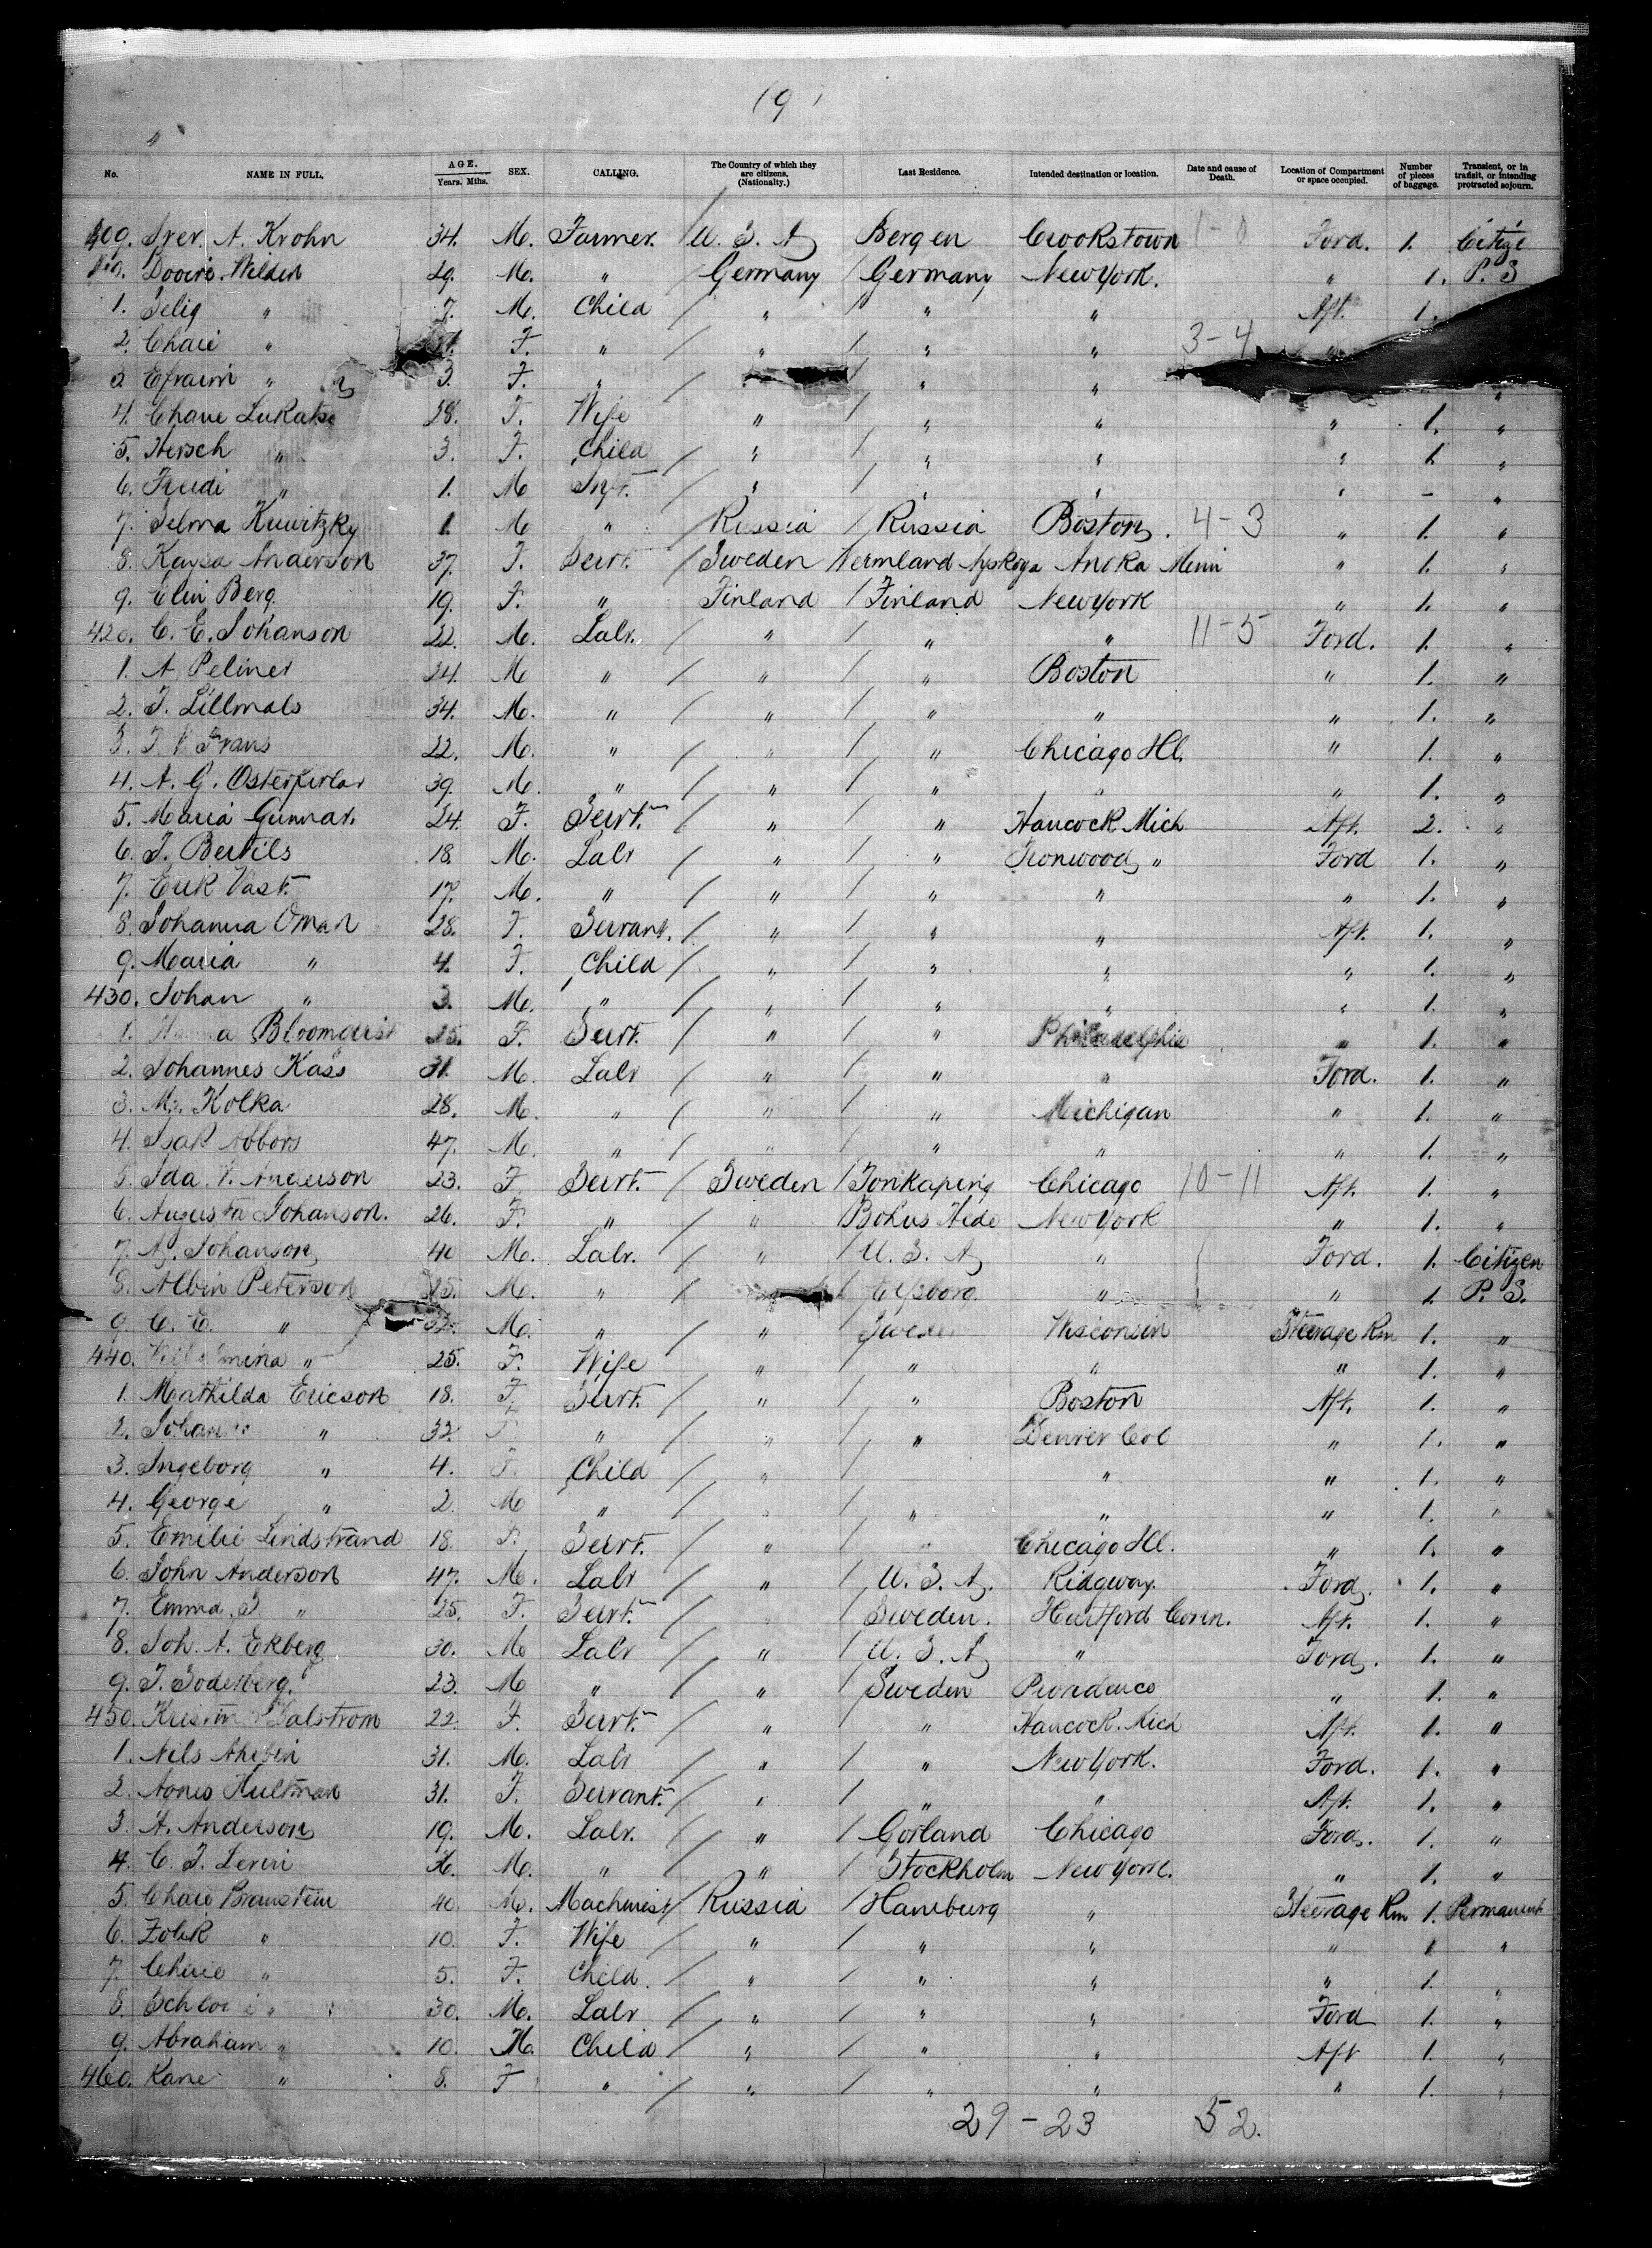 (9)
"
No. NAME IN FULL. AGE. Years. Mths. SEX. CALLING. The Country of which they are citizens. (Nationality.) Last Residence. Intended destination or location. Date and cause of Death. Location of Compartment or space occupied. Number of pieces of baggage. Transient, or in transit, or intending protracted sojourn.
409. Iver. A. Krohn 34. M. Farmer. / U. S. A Bergen Crookstown 1-0 Ford. 1. Citize
29. M. " Germany / Germany New York. " 1. P. S
1. Selig " 7. M. Child / " / " " Aft. 1.
2. Chaie " F. " / " / " " 3-4
3 Efraim " 3. F. " / " / " " "
4. Chane 28. F. Wife " / " " " 1. "
5. Hersch " 3. F. Child / " / " " " 1. "
6. " 1. M Inft. / " / " " " - "
7. Selma Kuwitzky 1. M " / Russia / Russia Boston. 4-3 " 1. "
8. Kaysa Anderson 37. F. Servt. / Sweden Wermland Anoka Minn " 1. "
9. Elin Berg. 19. F. " Finland / Finland New York " 1. "
420. C. E. Johanson 22. M. Labr. / " / " " 11-5 Ford. 1. "
1. A. 24. M " / " / " Boston " 1. "
2. J. Lillmals 34. M. " / " / " " " 1. "
3. J Frans 22. M. " / " / " Chicago Ill. " 1. "
4. A. G. 39. M. " / " / " " " 1. "
5. Maria Gunnar. 24. F. Servt. / " " Hancock Mich Aft. 2. "
6. J. Bertils 18. M. Labr / " / " Ironwood, " Ford 1. "
7. Erik Vast. 17. M. " / " / " " " 1. "
8. Johanna Oman 28. F. Servant. / " / " " Aft. 1. "
9. Maria " 4. F. Child / " / " " " 1. "
430. Johan " 3. M. " / " / " " " 1. "
1. Bloomquist 25. F. Servt. / " / " Philadelphia " 1. "
2. Johannes Kass 31. M. Labr / " / " " Ford. 1. "
3. M. Kolka 28. M. " / " / " Michigan " 1. "
4. Isak Abbors 47. M. " / " / " " " 1. "
5. Ida. Anderson 23. F Servt. / Sweden / Jonkaping Chicago 10-11 Aft. 1. "
6. Augusta Johanson. 26. F. " / " Bohus New York " 1. "
7. A. Johanson 40 M. Labr. " / U. S. A " Ford. 1. Citizen
8. Albin Peterson 25. M. " / / Elfsborg " " 1. P. S.
9. C. E. " M. " / " / Wisconsin Steerage Rm 1. "
440. " 25. F. Wife " / " " " 1. "
1. Mathilda Ericson 18. F Servt. / " / " Boston Aft. 1. "
2. " 32. F " / " / " Denver Col " 1. "
3. Ingeborg " 4. F. Child / " / " " 1. "
4. George " 2. M " / " / " " " 1. "
5. Emilie Lindstrand 18. F. Servt. / " / " Chicago Ill. " 1. "
6. John Anderson 47. M. Labr / " / U. S. A. Ridgway. Ford. 1. "
7. Emma. S " 25. F. Servt. / " / Sweden. Hartford Conn. Aft. 1. "
8. Joh. A. Ekberg 30. M Labr / " / U. S. A " Ford. 1. "
9. J. Soderberg. 23. M " / " / Sweden Providence " 1. "
450. Kristin 22. F. Servt. / " " Hancock. Mich Aft. 1. "
1. Nils 31. M. Labr / " / " New York. Ford. 1. "
2. Agnes Hultman 31. F. Servant. / " / " " Aft. 1. "
3. A. Anderson 19. M. Labr. / " / Gotland Chicago Ford. 1. "
4. C. J. Levin M. " / " / Stockholm New York. " 1. "
5 Chaie Branstein 40. M. Machinist / Russia / Hamburg " Steerage Rm 1. Permanent
6. " 10. F. Wife / " / " " " 1 "
7. " 5. F. Child. / " / " " " 1. "
8. " 30. M. Labr / " / " " Ford 1. "
9. Abraham " 10. M. Child / " / " " Aft 1. "
460. Kane " 8. F " / " / " " " 1. "
29-23 52.